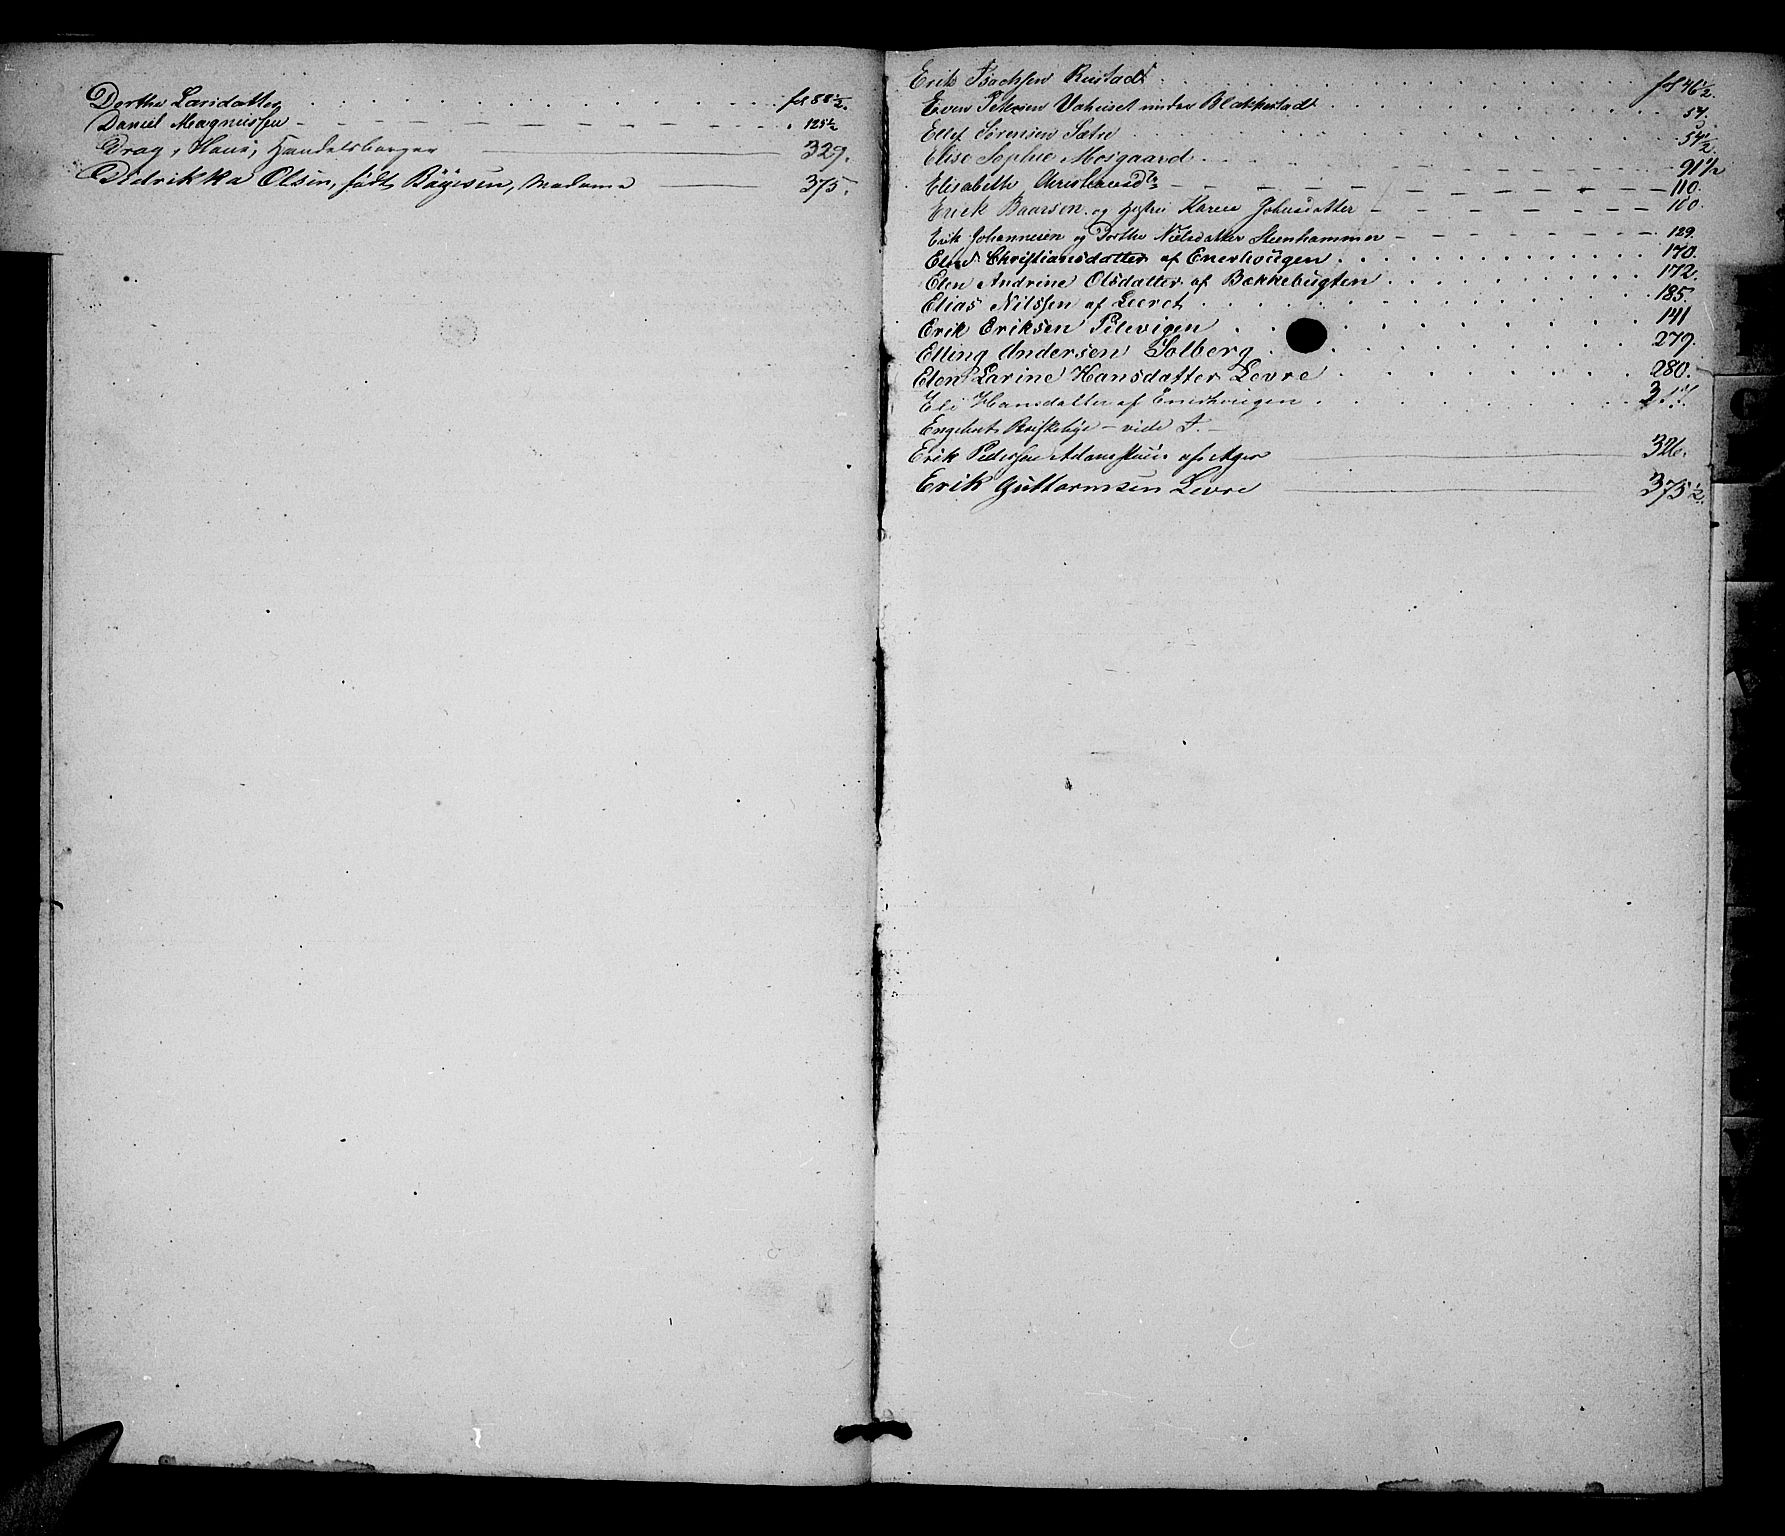 Dorthe Larsdatter . . . . . . . . . . fol 88 1/2.
Daniel Magnussen - - - - - - - - - - " 125 1/2
Drog, Hans, Handelsborger ——— 329.
Didrikka Olsen, født Bøyesen, Madame ——— 375.
Erik Isachsen Rustad . . . . . . . . . . fol 46 1/2.
Even Petersen under Blakkestad . . . . . . . . . . 54.
Ellef Sørensen Sætre . . . . . . . . . . 54 1/2.
Elise Sophie Mosgaard . . . . . . . . . . 91 1/2
Elisabeth Christiansd. - - - - - - - - - - 110.
Erick Baarsen og Hustru Karen Johnsdatter - - - - - - 100.
Erik Johannesen og Dorthe Nielsdatter Steenhammer - - - - - - 129.
Elen Christiansdatter af Enerhougen . . . . . . . . . . 170.
Elen Andrine Olsdatter af Bækkebugten . . . . . . . . . . 172.
Elias Nilssen af Leeret . . . . . . . . . . 185.
Erik Eriksen Pilevigen . . . . . . . . . . 141
Elling Andersen Solberg . . . . . . . . . . 279.
Elen Larine Hansdatter Levre . . . . . . . . . . 280.
Eli Hansdatter af Enerhougen . . . . . . . . . .
Engebret - vide
Erik Pedersen af Ager ——— 326.
Erik Guttormsen Levre ——— 375 1/2.
G